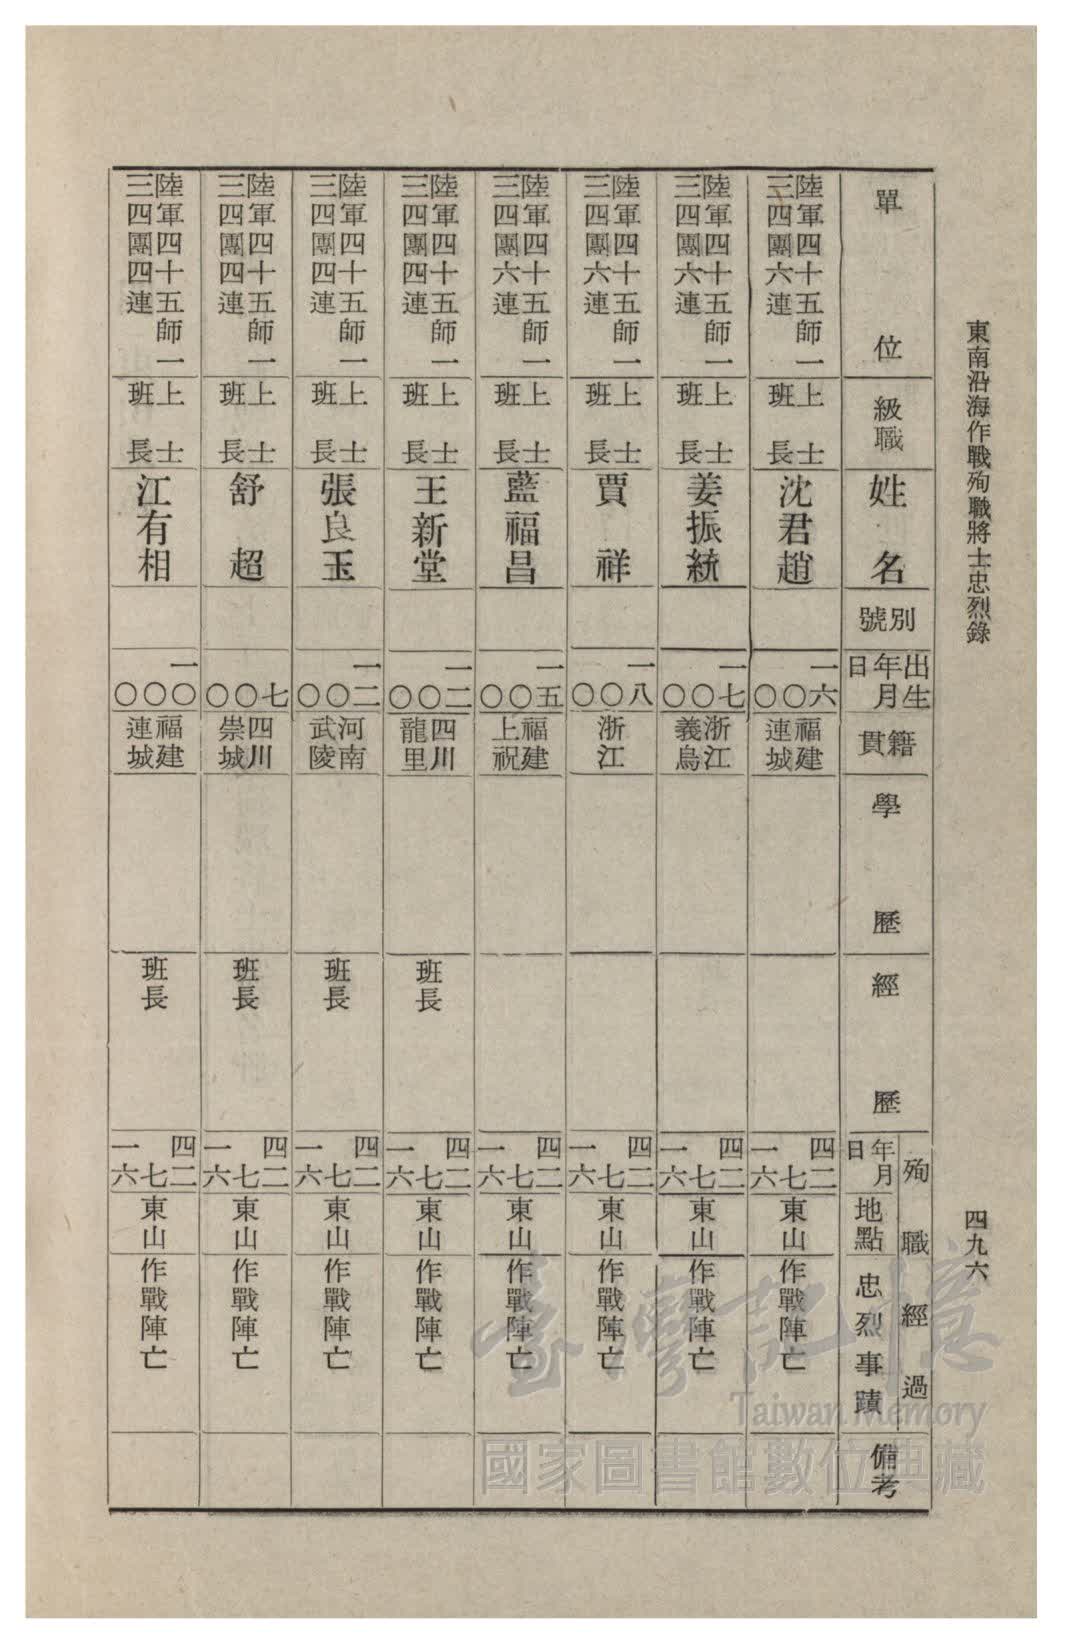 東南沿海作戰殉職將士忠烈錄
四九六
單位
級職
姓名
別號
出生年月日
籍貫
學歷
經歷
殉職經過
年月日
地點
忠烈事蹟
備考
陸軍四十五師一
三四團六連
上士
班長
沈君趙
一六
〇〇
福建
連城
四二
七
一六
東山
作戰陣亡
陸軍四十五師一
三四團六連
上士
班長
姜振統
一七
〇〇
浙江
義烏
四二
七
一六
東山
作戰陣亡
陸軍四十五師一
三四團六連
上士
班長
賈祥
一八
〇〇
浙江
四二
七
一六
東山
作戰陣亡
陸軍四十五師一
三四團六連
上士
班長
藍福昌
一五
〇〇
福建
上祝
四二
七
一六
東山
作戰陣亡
陸軍四十五師一
三四團四連
上士
班長
王新堂
一二
〇〇
四川
龍里
班長
四二
七
一六
東山
作戰陣亡
陸軍四十五師一
三四團四連
上士
班長
張良玉
一二
〇〇
河南
武陵
班長
四二
七
一六
東山
作戰陣亡
陸軍四十五師一
三四團四連
上士
班長
舒超
七
〇〇
四川
崇城
班長
四二
七
一六
東山
作戰陣亡
陸軍四十五師一
三四團四連
上士
班長
江有相
一〇
〇〇
福建
連城
班長
四二
七
一六
東山
作戰陣亡
臺灣記憶
Taiwan Memory
國家圖書館數位典藏